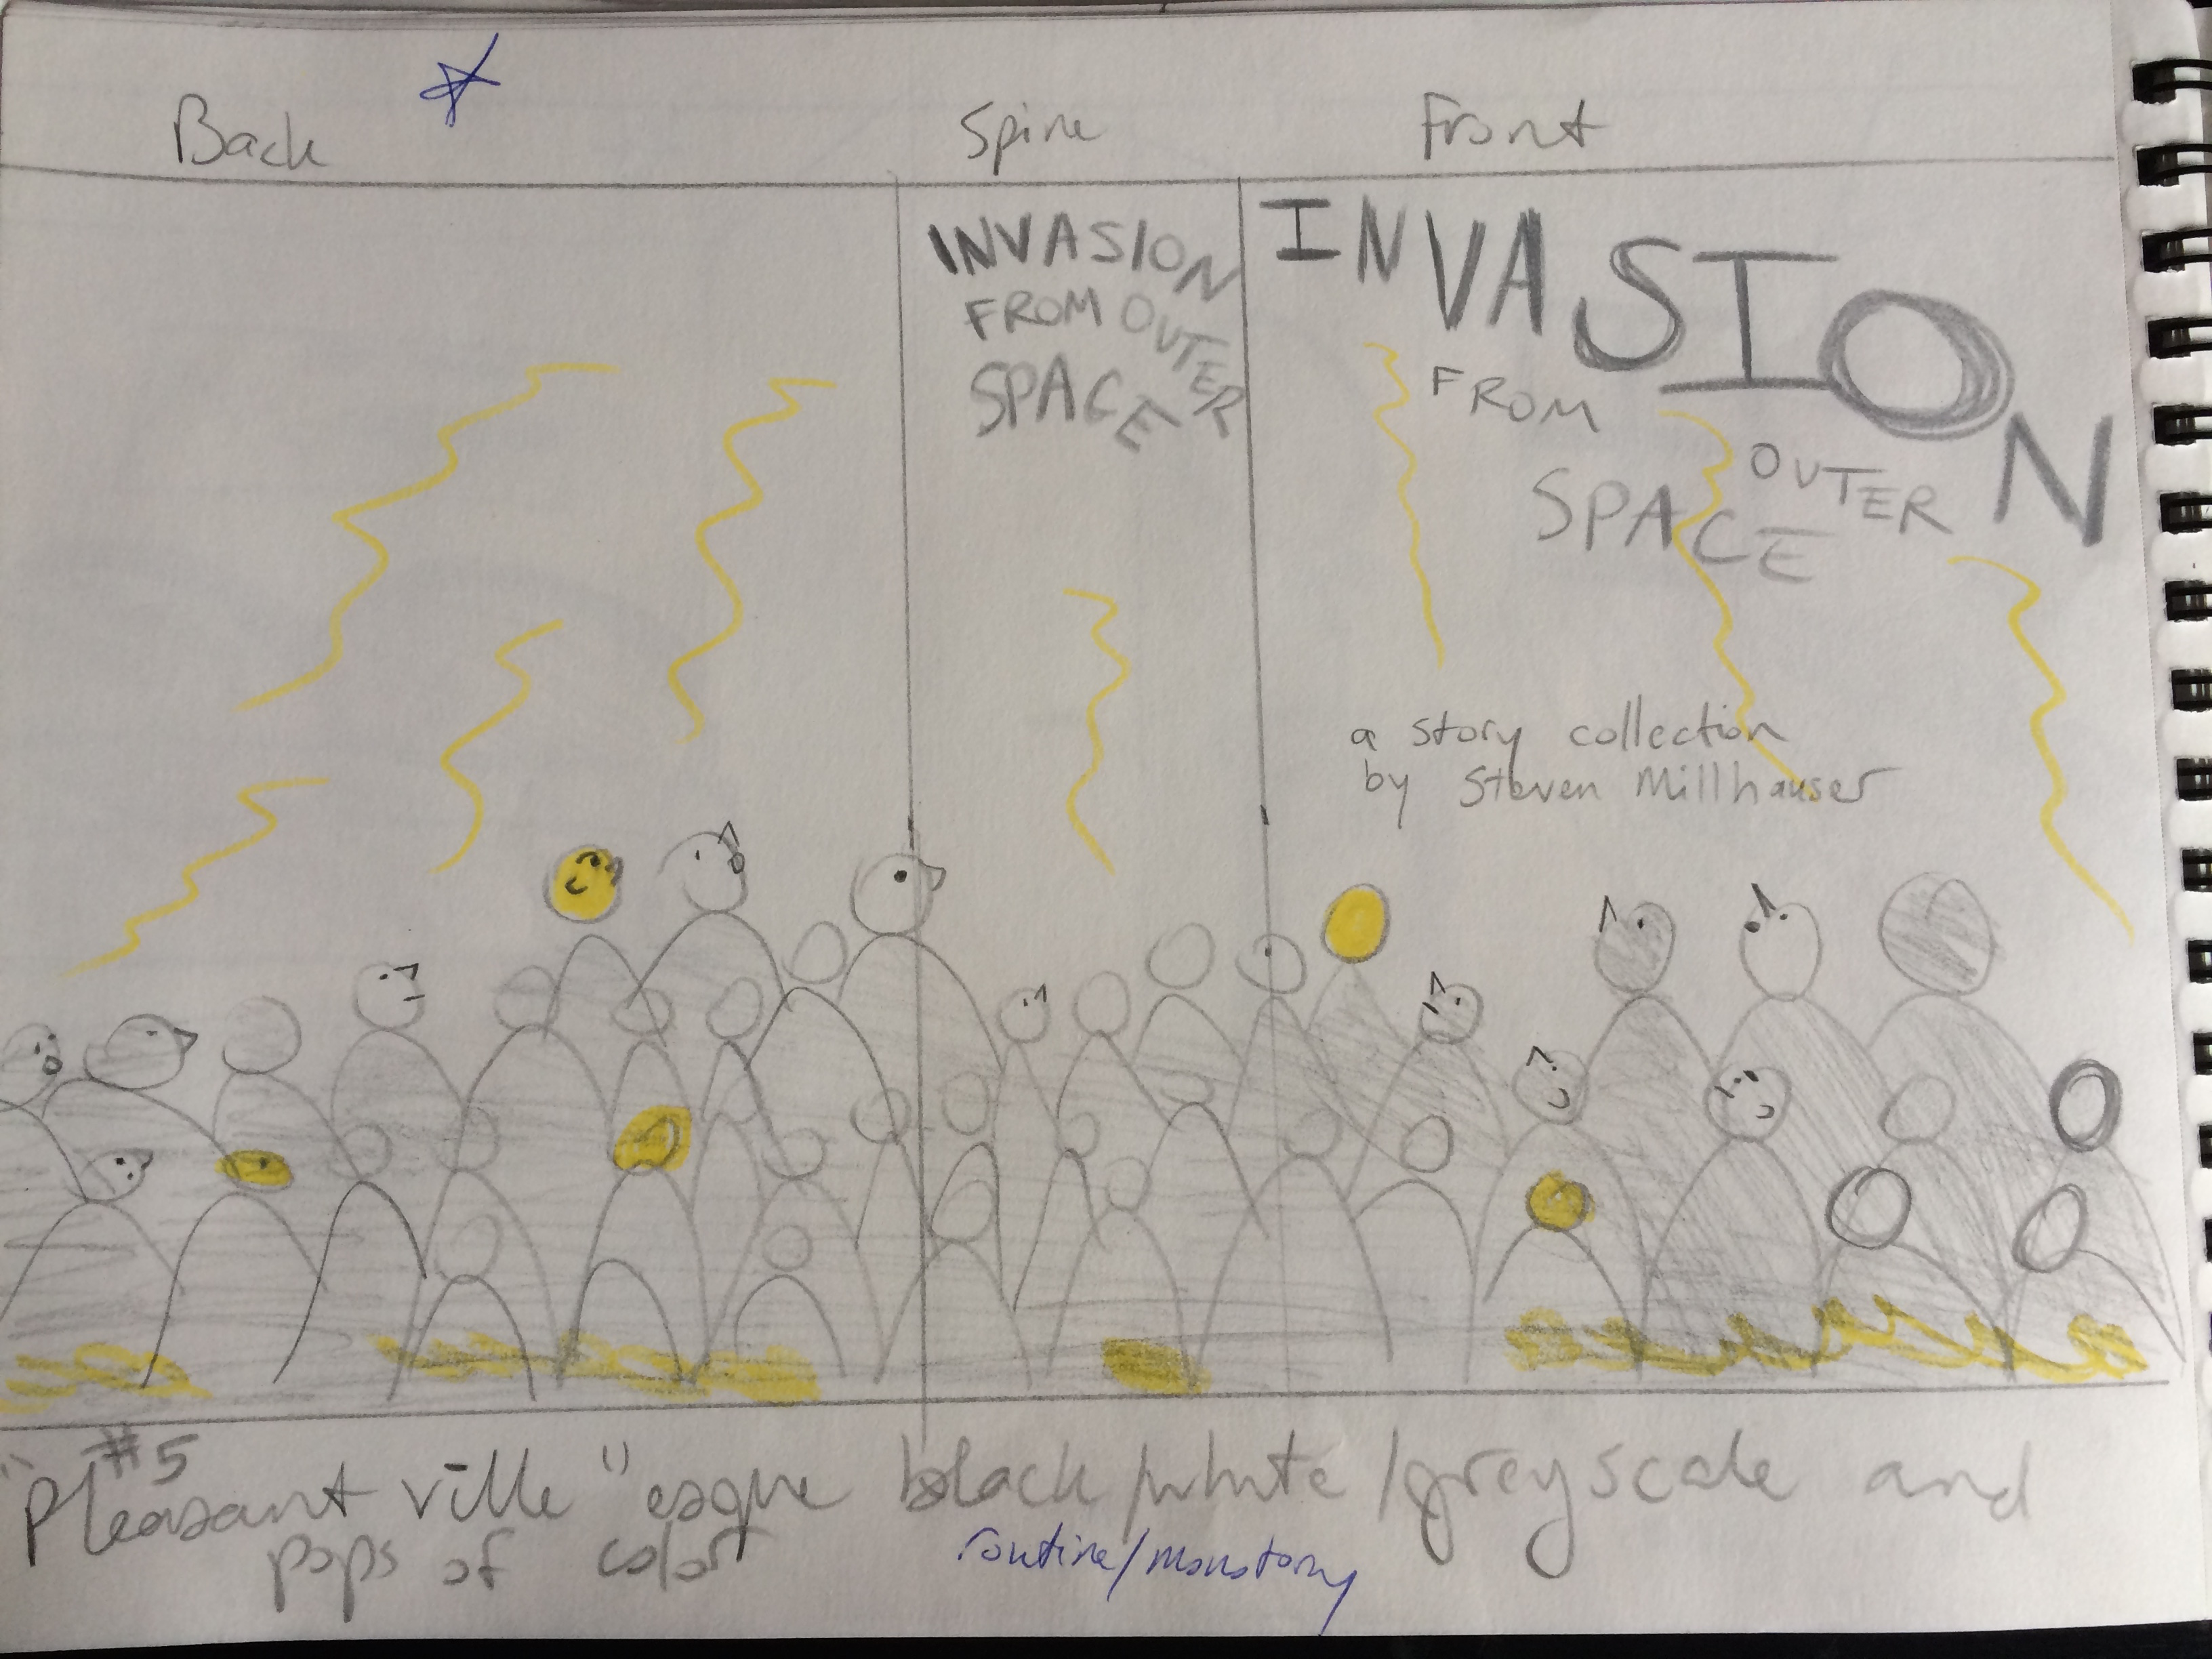 Back
Spine
Front
INVASION
FROM OUTER
SPACE
INVASION
FROM
OUTER
SPACE
a story collection
by Steven Millhauser
#5
"Pleasantville"esque black/white/greyscale and
pops of color
routine/monotony